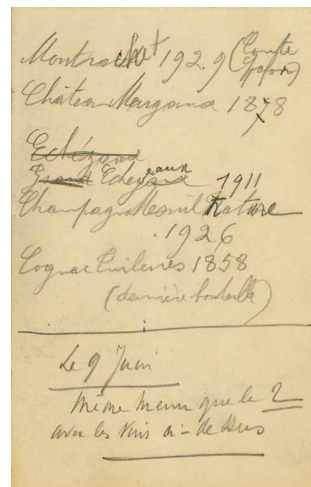 Montrachet 1929 (Comte
Lafon)
Château Margaux 1878
Echézeaux
Grands Echezeaux 1911
Champagne Mesnil Nature
1926
Cognac 1858
(dernière bouteille)
Le 9 Juin
Même menu que le 2
avec les vins ci-dessus